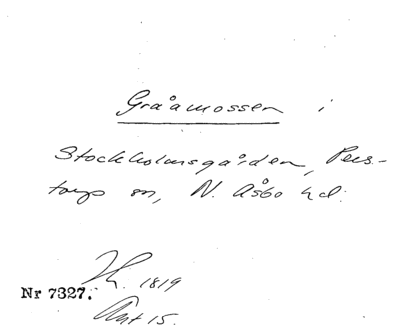 Gråamossen i
Stockholmsgården, Pers-
torps sn, N. Åsbo hd.
1819
Nr 7327.
Ant 15.